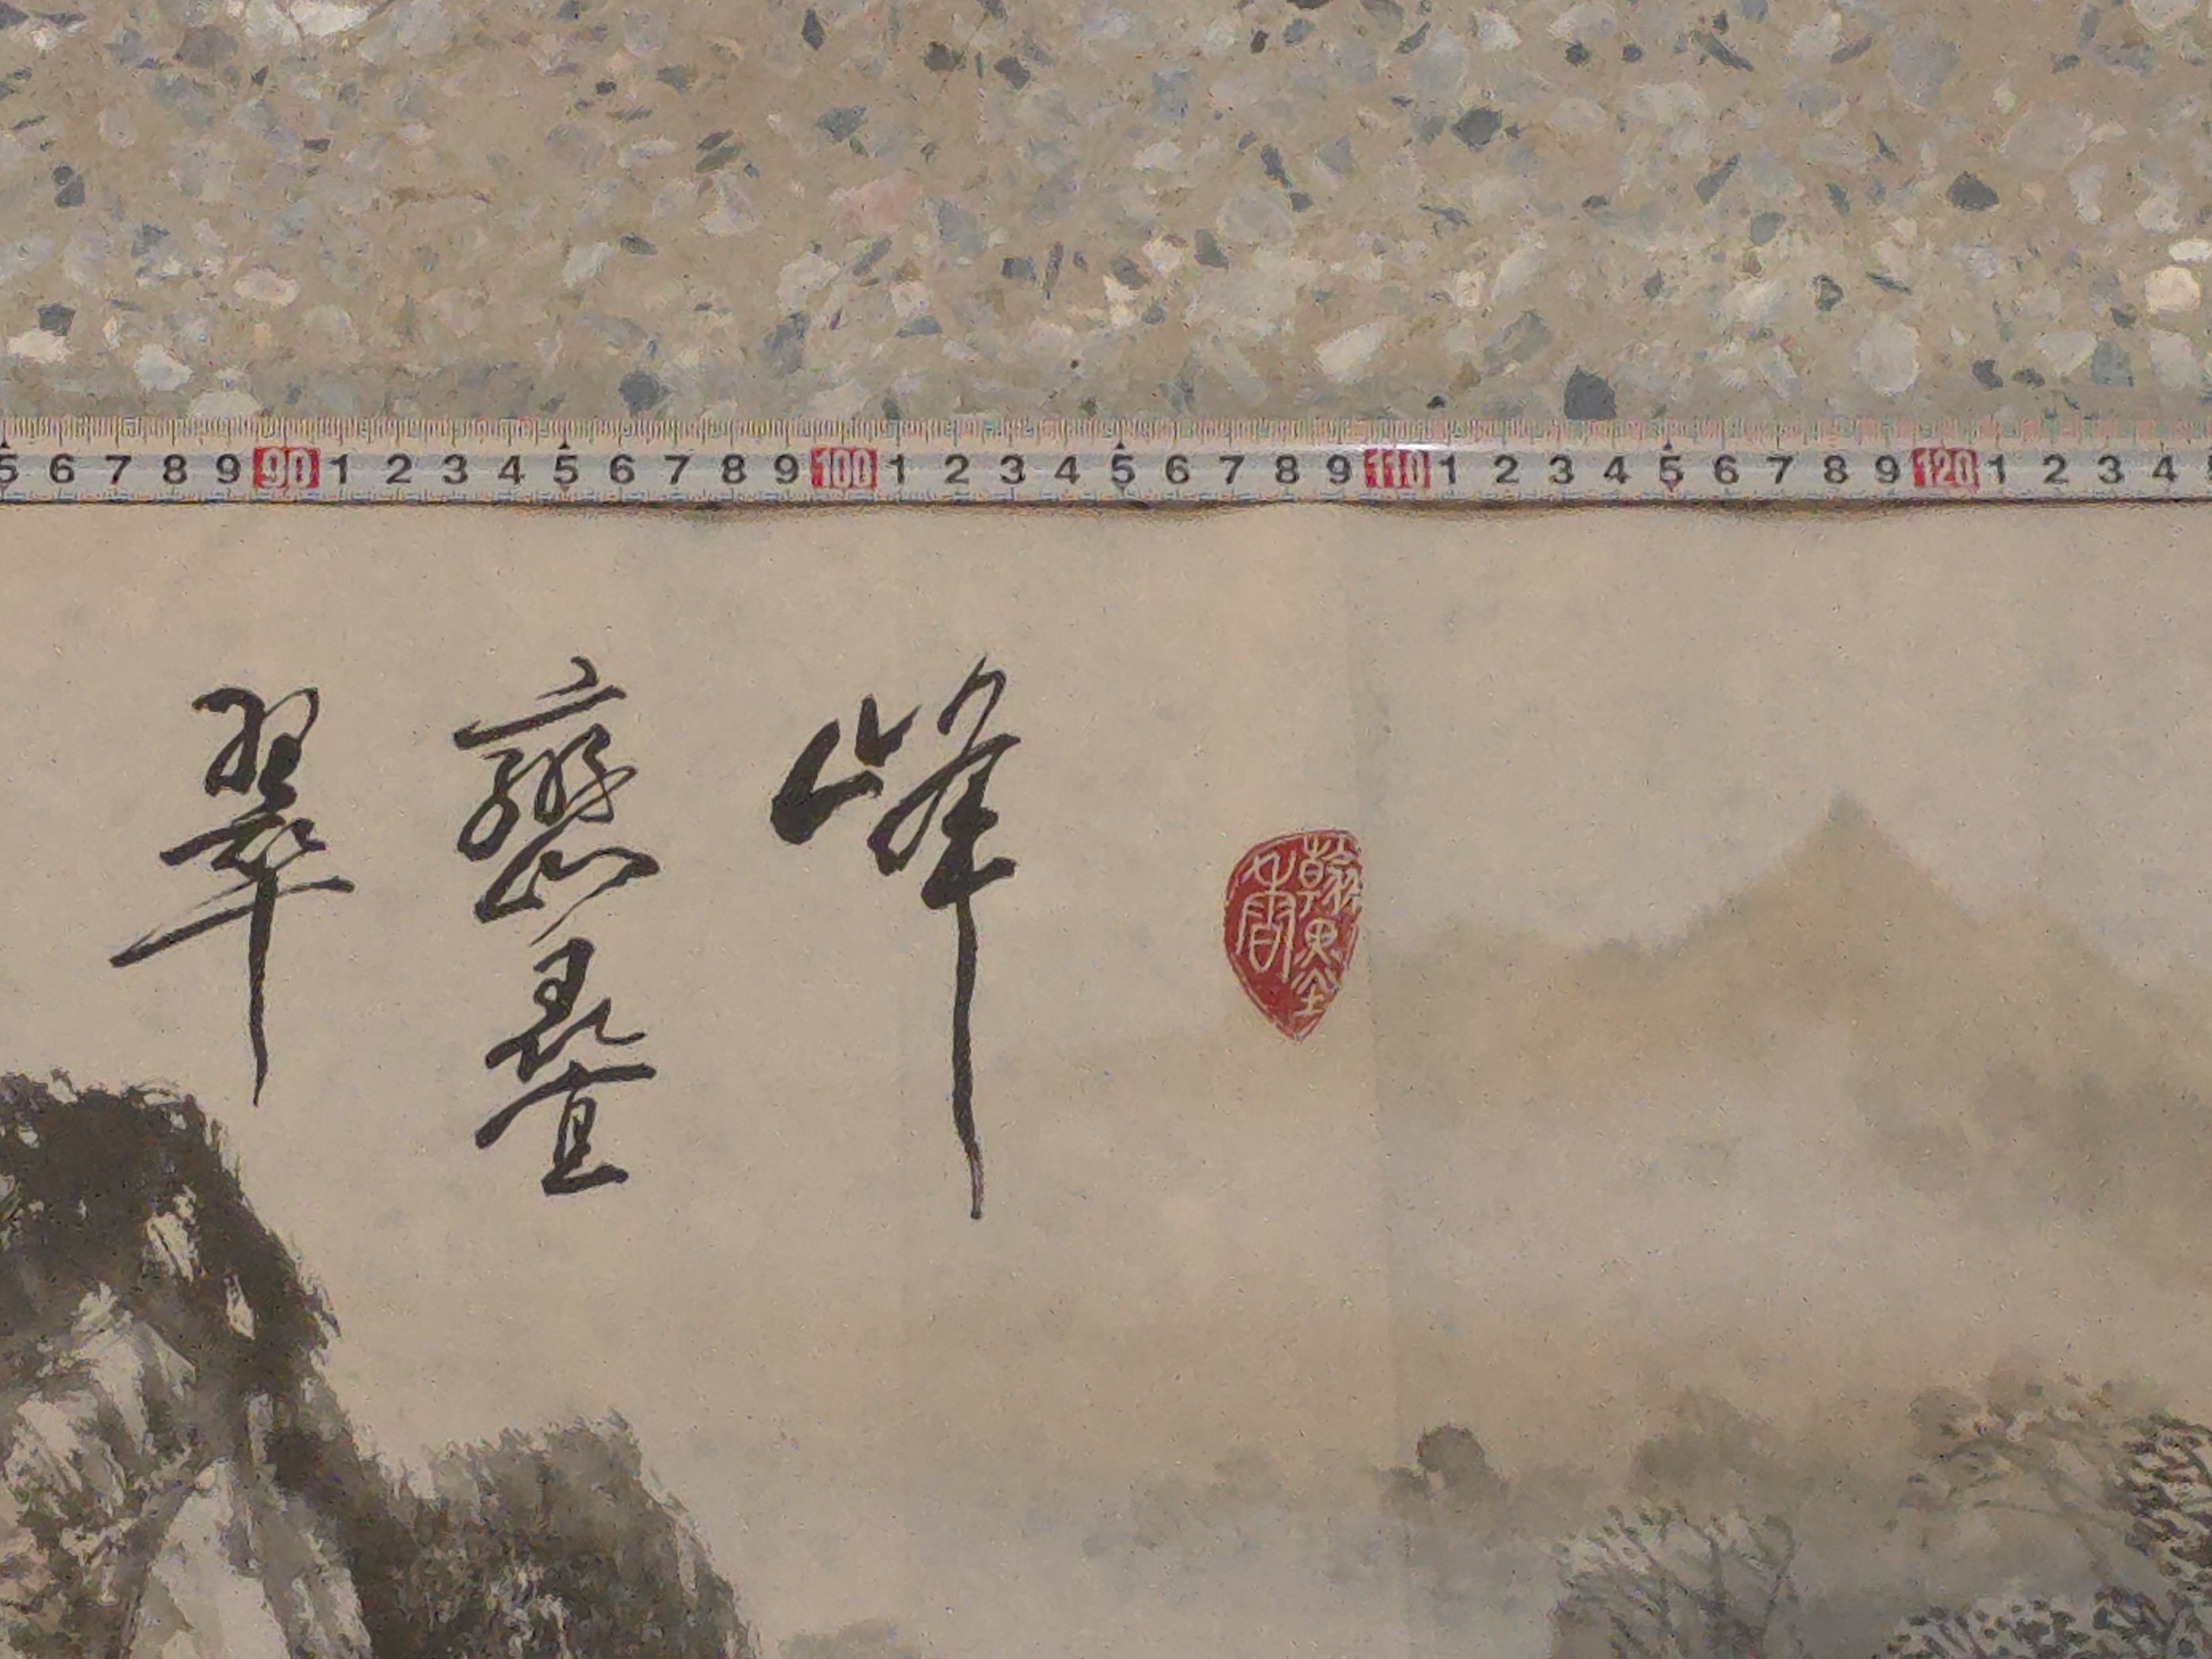 5 6 7 8 9 90 1 2 3 4 5 6 7 8 9 100 1 2 3 4 5 6 7 8 9 110 1 2 3 4 5 6 7 8 9 120 1 2 3 4
翰墨
峰
巒疊
翠